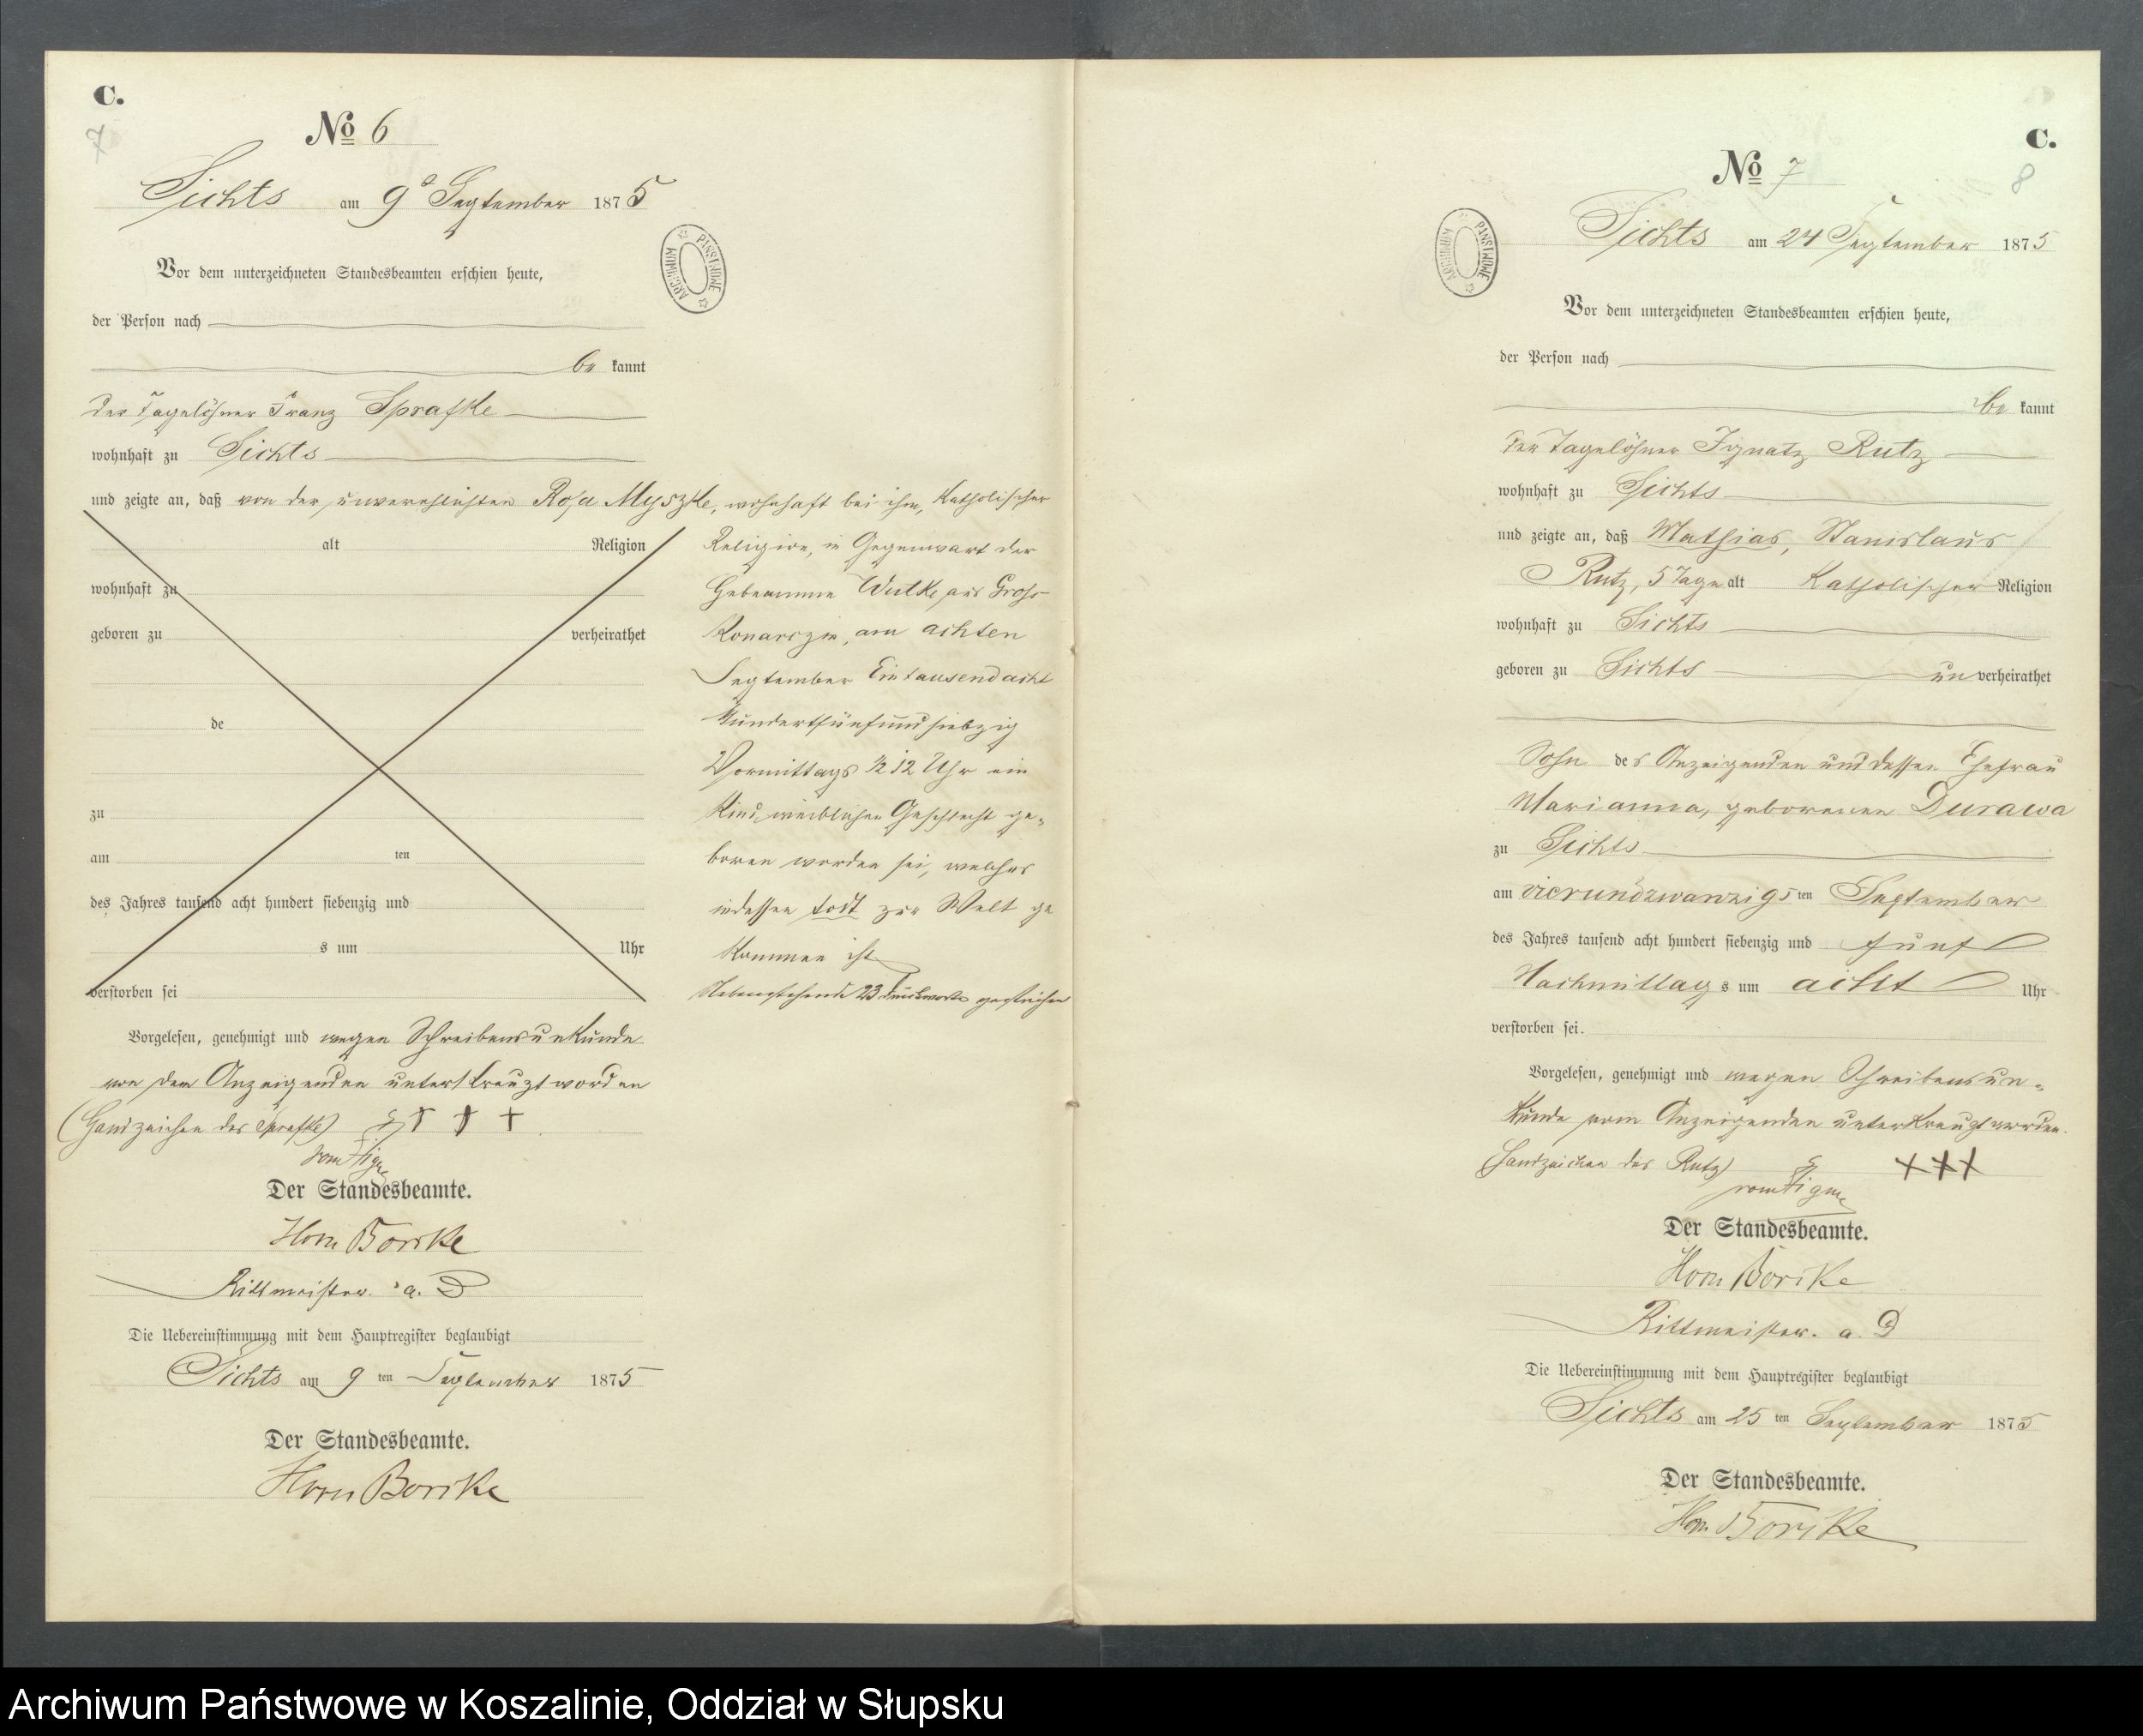 C.
7
No 6
Sichts am 9 September 1875
ARCHIWUM PAŃSTWOWE
Vor dem unterzeichneten Standesbeamten erschien heute,
der Person nach
be kannt
der Tagelöhner Franz Sprafke
wohnhaft zu Sichts
und zeigte an, daß von der unverehelichten Rosa Myszke, wohnhaft bei ihm, Katholischer
alt Religion
wohnhaft zu
geboren zu verheirathet
de
zu
am ten
des Jahres tausend acht hundert siebenzig und
s um Uhr
verstorben sei
Religion, in Gegenwart der
Hebeamme Wutke aus Gross
Konarczin, am achten
September Eintausendacht
hundertfünfundsiebzig
Vormittags ½ 12 Uhr ein
Kind weiblichen Geschlecht ge-
boren worden sei, welches
indessen todt zur Welt ge
kommen ist
Nebenstehende 23 Druckworte gestrichen
Vorgelesen, genehmigt und wegen Schreibensunkunde
von dem Anzeigenden unterkreuzt worden
(Handzeichen des Sprafke) + + +
Der Standesbeamte.
Horn Borike
Rittmeister a. D
Die Uebereinstimmung mit dem Hauptregister beglaubigt
Sichts am 9 ten September 1875
Der Standesbeamte.
Horn Borike
C.
8
No 7
Sichts am 24 September 1875
ARCHIWUM PAŃSTWOWE
Vor dem unterzeichneten Standesbeamten erschien heute,
der Person nach
be kannt
der Tagelöhner Ignatz Rutz
wohnhaft zu Sichts
und zeigte an, daß Mathias, Stanislaus
Rutz, 5 Tage alt Katholischer Religion
wohnhaft zu Sichts
geboren zu Sichts un verheirathet
Sohn des Anzeigenden und dessen Ehefrau
Marianna, geborenen Durawa
zu Sichts
am vierundzwanzigs ten September
des Jahres tausend acht hundert siebenzig und fünf
Nachmittag s um acht Uhr
verstorben sei.
Vorgelesen, genehmigt und wegen Schreibensun-
kunde vom Anzeigenden unterkreuzt worden.
(Handzeichen des Rutz) +++
Der Standesbeamte.
Horn Borike
Rittmeister. a. D
Die Uebereinstimmung mit dem Hauptregister beglaubigt
Sichts am 25 ten September 1875
Der Standesbeamte.
Horn Borike
Archiwum Państwowe w Koszalinie, Oddział w Słupsku